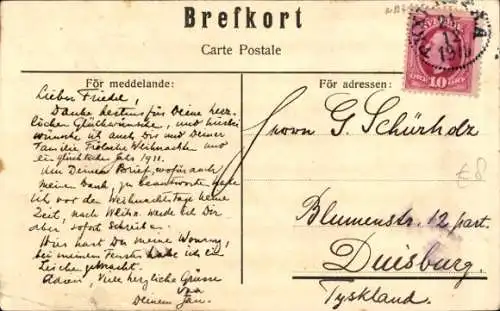 Brefkort
Carte Postale
För meddelande:
För adressen:
Lieber Friedel,
Danke bestens für Deine herz-
lichen Glückwünsche, und hierbei
wünsche ich auch Dir und Deiner
Familie Fröhliche Weihnacht und
ein glückliches Jahr 1911.
Um Deinen Brief, wofür auch
meinen Dank, zu beantworten habe
ich vor den Weihnachtstage keine
Zeit, nach Weihn. werde ich Dir
aber sofort Schreibe.
Hier hast Du meine Wonung,
bei meinem Fenster habe ich ein
Zeichen gemacht.
Viele herzliche Grüsse
Von
Deinem Jan.
Herrn G. Schürholz
Blumenstr. 12 part.
Duisburg.
Tyskland.
10
£8